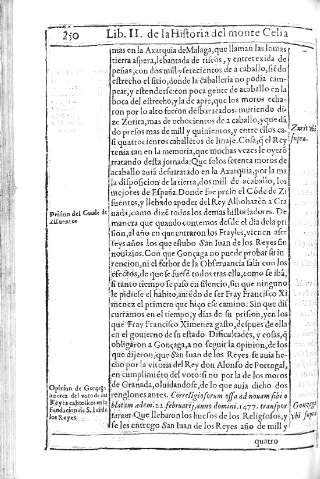 250 Lib. II. de la Historia del monte Celia
mas en la Axarquia de Malaga, que llaman las lomas
tierra aspera, lebantada de riscos, y entretexida de
peñas, con dos mil y setecientos de a caballo, siẽdo
estrecho el sitio, donde la caballeria no podia cam
pear, y estenderse con poca gente de acaballo en la
boca del estrecho, y la de apie, que los moros echa-
ron por lo alto fueron desbaratados: muriendo di-
ze Zurita, mas de ochocientos de a caballo, y quedã
do presos mas de mil y quinientos, y entre ellos ca-
si quatrocientos caballeros de linaje. Cosa, q̃ el Rey
tenia san en la memoria, que muchas vezes le oyerõ
tratando desta jornada: Que solos setenta moros de
acaballo auiã desbaratado en la Axarquia, por la ma
la disposiciõ de la tierra, dos mil de acaballo, los
mejores de España. Donde fue preso el Cõde de Si
fuentes, y llebado apoder del Rey Albohazẽn a Gra
nada, como dizẽ todos los demas historiadores. De
manera que quando contemos desde el dia dela pri
sion, al año en que entraron los Frayles, vienen a ser
seys años los que estubo San Iuan de los Reyes sin
nouizias. Con que Gonçaga no puede probar su in
tencion, ni el ferbor de la Obserbancia salir con los
efectos, de que se fuese todo tras ella, como se iba,
si tanto tiempo se pasó en silencio, sin que ninguno
le pidiese el habito, auiẽdo de ser Fray Francisco Xi
menez el primero que hizo ese camino. Sin que dis
curramos en el tiempo, y dias de su prision, y en los
que Fray Francisco Ximenez gasto, despues de ella
en el gouierno de su estado Dificultades, y cosas, q̃
obligaron a Gonçaga, a no seguir la opinion, de los
que dijeron, que San Iuan de los Reyes se auia he-
cho por la vitoria del Rey don Alonso de Portugal,
en cumplimiẽto del voto: si no por la de los moros
de Granada, oluidandose, de lo que auia dicho dos
renglones antes. Correligiosorum ossa ad nouam sibi o
blatam adem: 22. februarij, annos domini. 1477. transpor
tarum. Que llebaron los huesos de los Religiosos, y
se les entrego San Iuan de los Reyes año de mil y
quatro
Zurit vbi
supra.
Prision del Conde de
Sifuentes
Opinion de Gonçaga
acerca del voto de los
Reyes catholicos en la
fundacion de S. Iuã de
los Reyes
Gonzaga
vbi supra